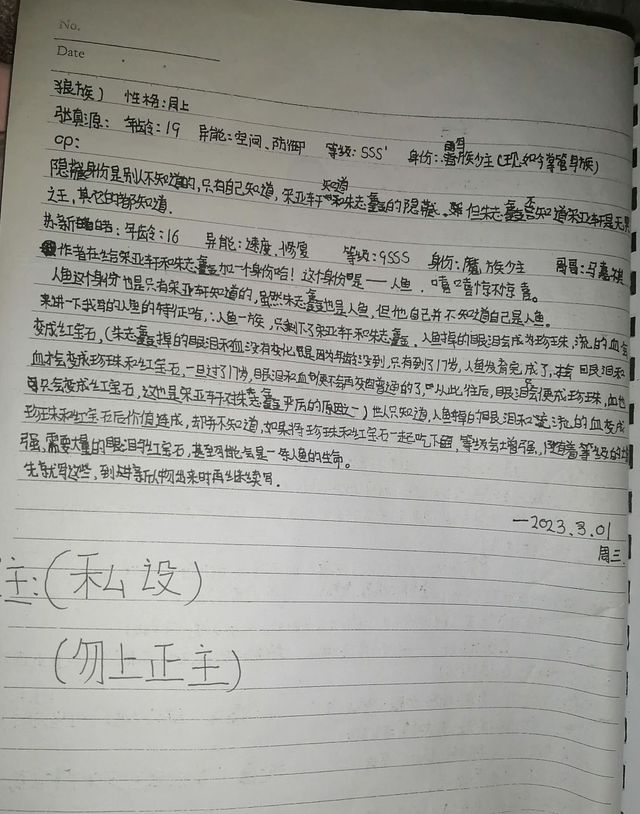 No.
Date
狼族) 性格:同上
张真源: 年龄:19 异能:空间、防御 等级:SSS 身份:族少主(现如今掌管身族)
cp:
隐藏身份是别人不知道的,只有自己知道,宋亚轩知道和朱志鑫的隐藏。但朱志鑫否知道宋亚轩是无界
之王,其它的都知道.
苏新皓:年龄:16 异能:速度、修复 等级:9SSS 身份:魔族少主 哥哥:马嘉祺
作者在给宋亚轩和朱志鑫加一个身份哈!这个身份即是——人鱼.嘻嘻惊不惊喜。
人鱼这个身份也是只有宋亚轩知道的,虽然朱志鑫也是人鱼,但他自己并不知道自己是人鱼。
来讲一下我写的人鱼的特征哈,:人鱼一族,只剩下了宋亚轩和朱志鑫.人鱼掉的眼泪会成为珍珠,流的血会
变成红宝石,(朱志鑫掉的眼泪和血没有变化,只是因为年龄没到,只有到了17岁,人鱼发育完成了,才会眼泪和
血才会变成珍珠和红宝石,一旦过了17岁,眼泪和血便不会再变回普通的了,从此往后,眼泪会便成珍珠,血也
只会变成红宝石,这也是宋亚轩对朱志鑫严厉的原因之一)世人只知道,人鱼掉的眼泪和流的血变成
珍珠和红宝石后价值连成,却不知道,如果将珍珠和红宝石一起吃下还,等级会增强,随着等级的增
强,需要大量的眼泪和红宝石,甚至可能会是一条人鱼的生命。
先就写这些,到时新人物出来时再继续写.
—2023.3.01
周三
注:(私设)
(勿上正主)